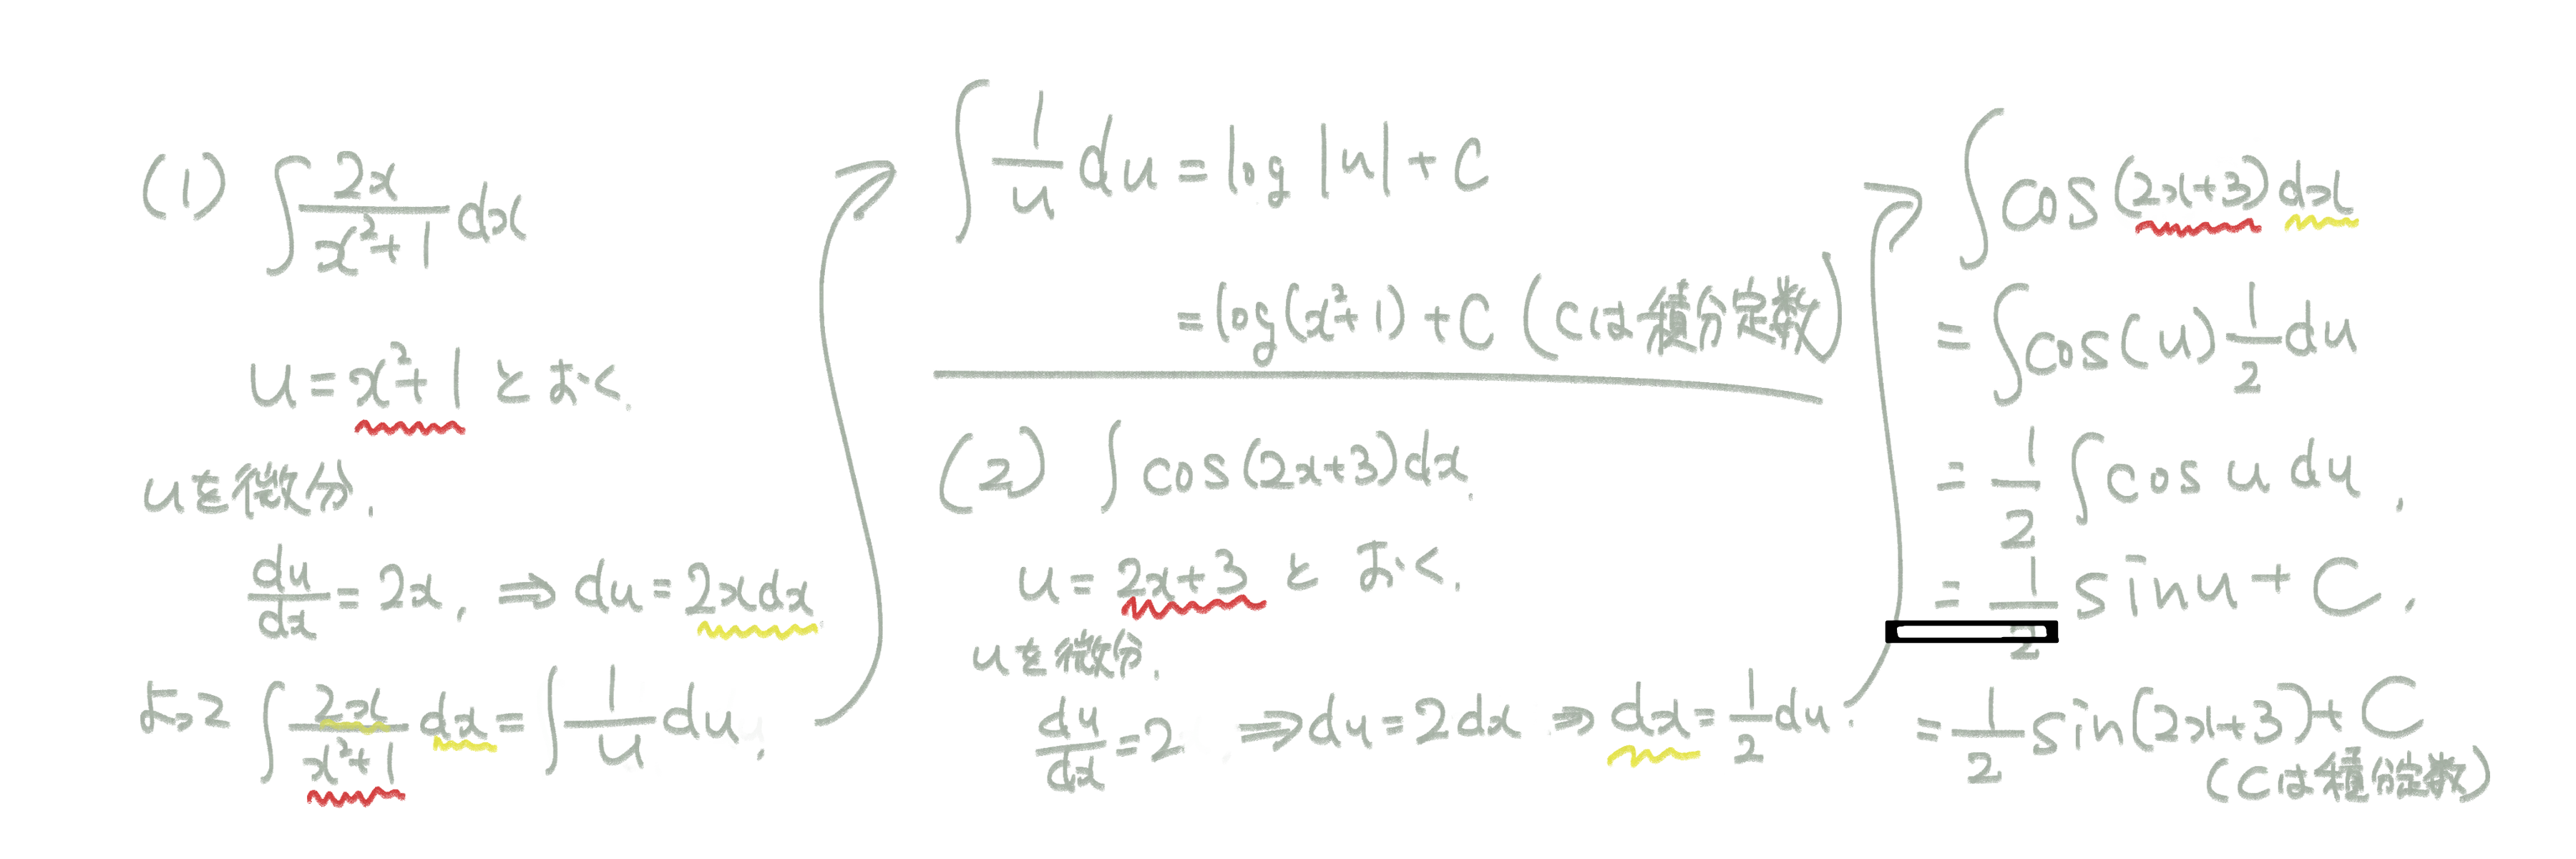 (1) ∫ 2x/(x²+1) dx
u = x²+1 とおく.
uを微分.
du/dx = 2x, ⇒ du = 2xdx
よって ∫ 2x/(x²+1) dx = ∫ 1/u du,
∫ 1/u du = log |u| + C
= log(x²+1) + C (Cは積分定数)
(2) ∫ cos(2x+3)dx.
u = 2x+3 とおく.
uを微分.
du/dx = 2 ⇒ du = 2dx ⇒ dx = 1/2 du.
∫ cos(2x+3)dx
= ∫ cos(u) 1/2 du
= 1/2 ∫ cos u du,
= 1/2 sinu + C,
= 1/2 sin(2x+3) + C
(Cは積分定数)